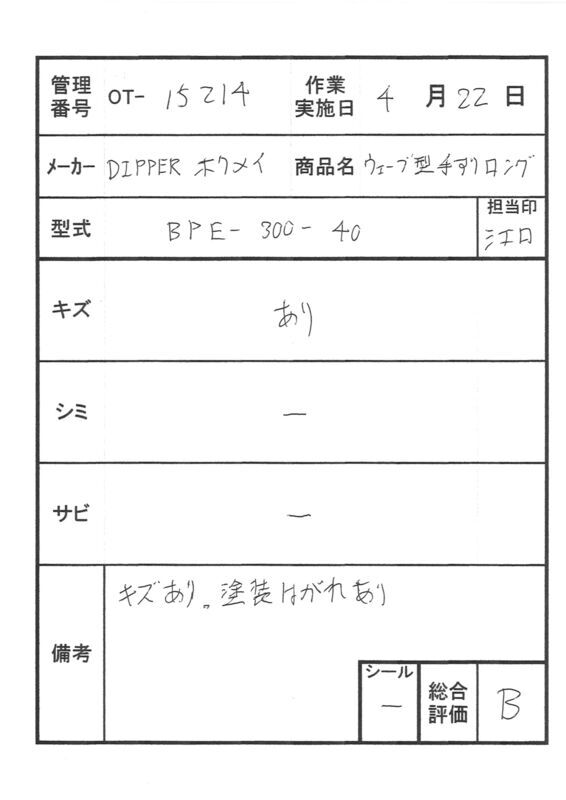 管理番号 OT- 15214 作業実施日 4 月 22 日
メーカー DIPPER ホクメイ 商品名 ウェーブ型手すりロング
型式 BPE-300-40 担当印 江口
キズ あり
シミ ー
サビ ー
備考 キズあり。塗装はがれあり
シール ー 総合評価 B